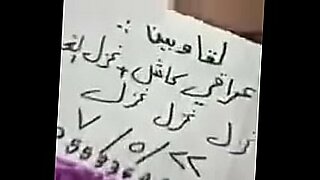 لفا وبينا :
عراقي كاش + نزل
نزل نزل نزل
٢٢ / ٥ / ٧